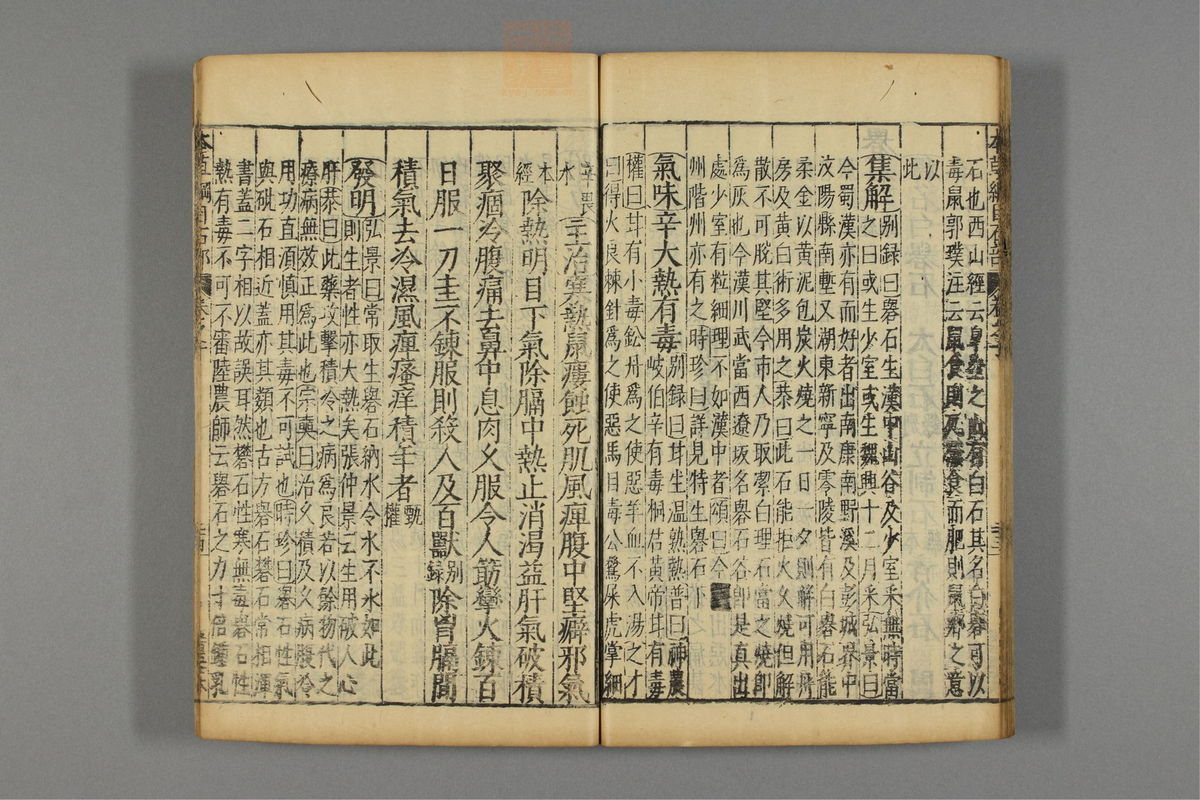 石也西山經云皐塗之山有白石其名曰礜可以
毒鼠郭璞注云鼠食則死蠶食而肥則鼠鄉之意
以
此
集解别録曰礜石生漢中山谷及少室采無時當
之曰或生少室或生魏興十二月采弘景曰
今蜀漢亦有而好者出南康南野溪及彭城界中
汶陽縣南塹又湖東新寧及零陵皆有白礜石能
柔金以黄泥包炭火燒之一日一夕則解可用丹
房及黄白術多用之恭曰此石能拒火久燒但解
散不可脱其堅今市人乃取潔白理石當之燒即
爲灰也今漢川武當西遼坂名礜石谷即是真出
處少室有粒細理不如漢中者頌曰今
州階州亦有之時珍曰詳見特生礜石下
氣味辛大熱有毒别録曰甘生温熟熱普曰神農
岐伯辛有毒桐君黄帝甘有毒
權曰甘有小毒鉛丹爲之使惡羊血不入湯之才
曰得火良棘針爲之使惡馬目毒公鶩屎虎掌細
辛畏
水主治寒熱鼠瘻蝕死肌風痺腹中堅癖邪氣
本經除熱明目下氣除膈中熱止消渴益肝氣破積
聚痼冷腹痛去鼻中息肉久服令人筋攣火鍊百
日服一刀圭不鍊服則殺人及百獸别録除胷膈間
積氣去冷濕風痺瘙痒積年者甄權
發明弘景曰常取生礜石納水令水不氷如此
則生者性亦大熱矣張仲景云生用破人心
肝恭曰此藥攻擊積冷之病爲良若以餘物代之
療病無效正爲此也宗奭曰治久積及久病腹冷
用功直須慎用其毒不可試也時珍曰礜石性氣
與砒石相近蓋亦其類也古方礜石礬石常相渾
書蓋二字相似故誤耳然礬石性寒無毒礜石性
熱有毒不可不審陸農師云礜石之力十倍鍾乳